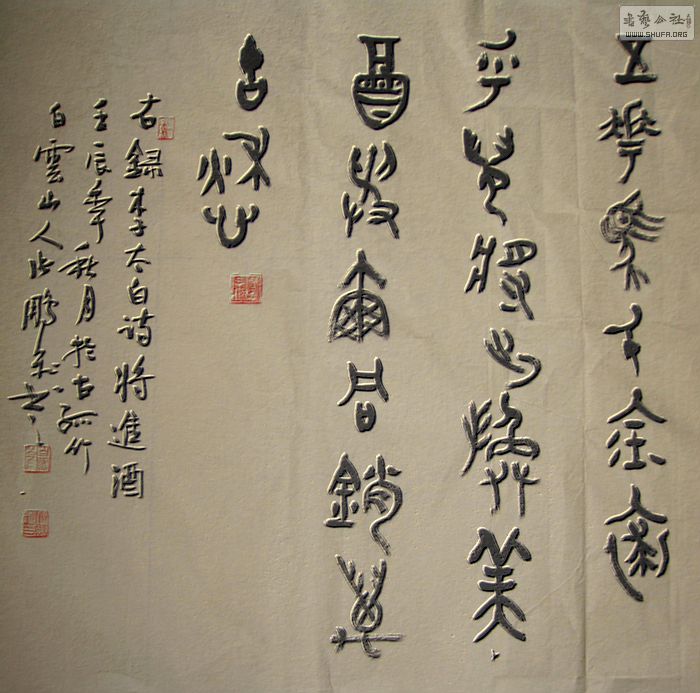 书艺公社
WWW.SHUFA.ORG
五花馬千金裘
乎兒將出換美
酒與爾同銷萬
古愁
右録李太白詩將進酒
壬辰年秋月於古孤竹
白雲山人張鵬書